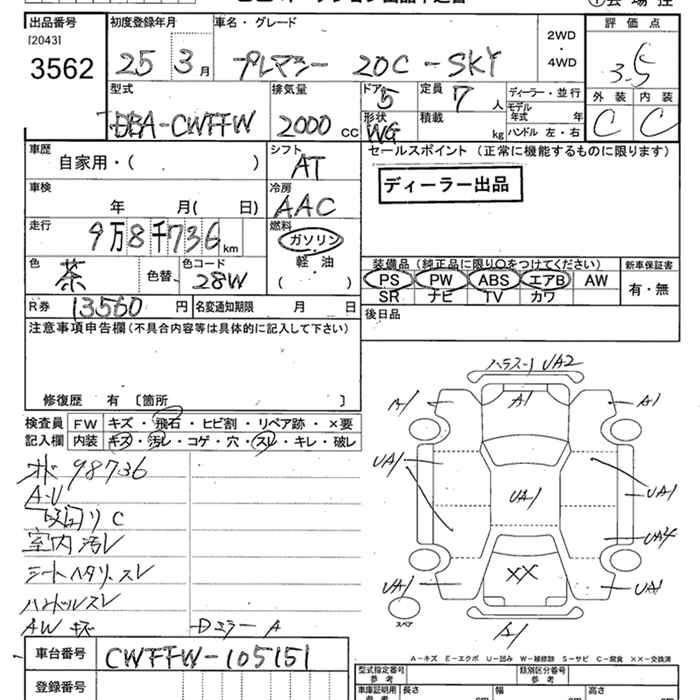 出品番号 初度登録年月 車名・グレード 2WD ・ 4WD 評価点
[2043]
3562 25 3月 プレマシー 20C-SKY 3.5
外装 内装
C C
型式 排気量 ドア 定員 ディーラー・並行
DBA-CWFFW 2000cc 5 7人 モデル年式 年
形状 積載 ハンドル 左・右
WG kg
車歴 シフト セールスポイント (正常に機能するものに限ります)
自家用・( ) AT
ディーラー出品
車検 冷房
年 月( 日) AAC
走行 燃料
9万8千736km ガソリン
軽・油
( )
色 色替 色コード
茶 28W
装備品 (純正品に限り○をつけてください) 新車保証書
PS PW ABS エアB AW 有・無
SR ナビ TV カワ
R券 13560円 名変通知期限 月 日
後日品
注意事項申告欄(不具合内容等は具体的に記入して下さい)
修復歴 有 〔箇所 〕
検査員 FW キズ・飛石・ヒビ割・リペア跡・×要
記入欄 内装 キズ・汚レ・コゲ・穴・スレ・キレ・破レ
98736
A-U
C
室内汚レ
シートヘタリ、スレ
ハンドルスレ
AW キズ Dミラー A
UA2
A1 A1 A1
UA1 UA1 UA1
UA4
XX
UA1 UA1
スペア
A1
A-キズ E-エクボ U-凹み W-補修跡 S-サビ C-腐食 ××-交換済
車台番号 CWFFW-105151
型式指定番号 参考 類別区分番号 参考
登録番号
車庫証明用 参考 長さ cm 幅 cm 高さ cm